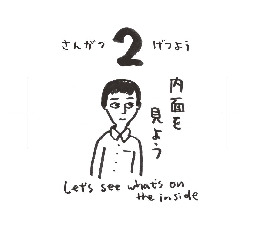 さんがつ 2 げつよう
内面を
見よう
Let's see what's on
the inside